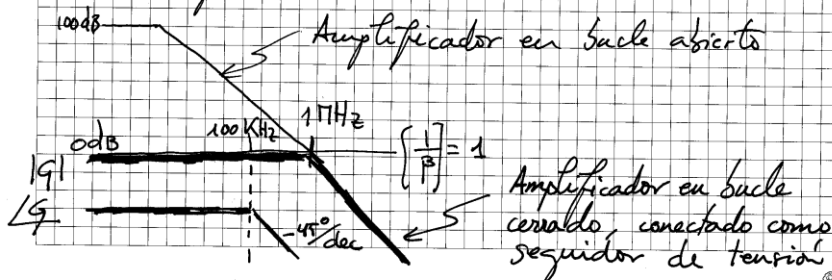 100dB
Amplificador en bucle abierto
0dB
100 KHz
1MHz
[1/β] = 1
|G|
∠G
-45°/dec
Amplificador en bucle
cerrado, conectado como
seguidor de tensión